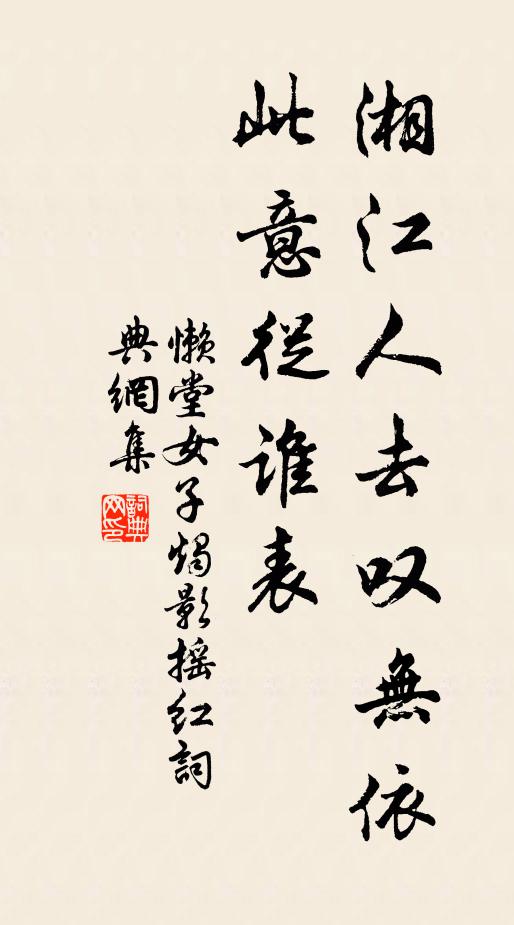 湘江人去叹無依
此意從誰表
懒堂女子燭影摇红詞
典網集
詞典網印